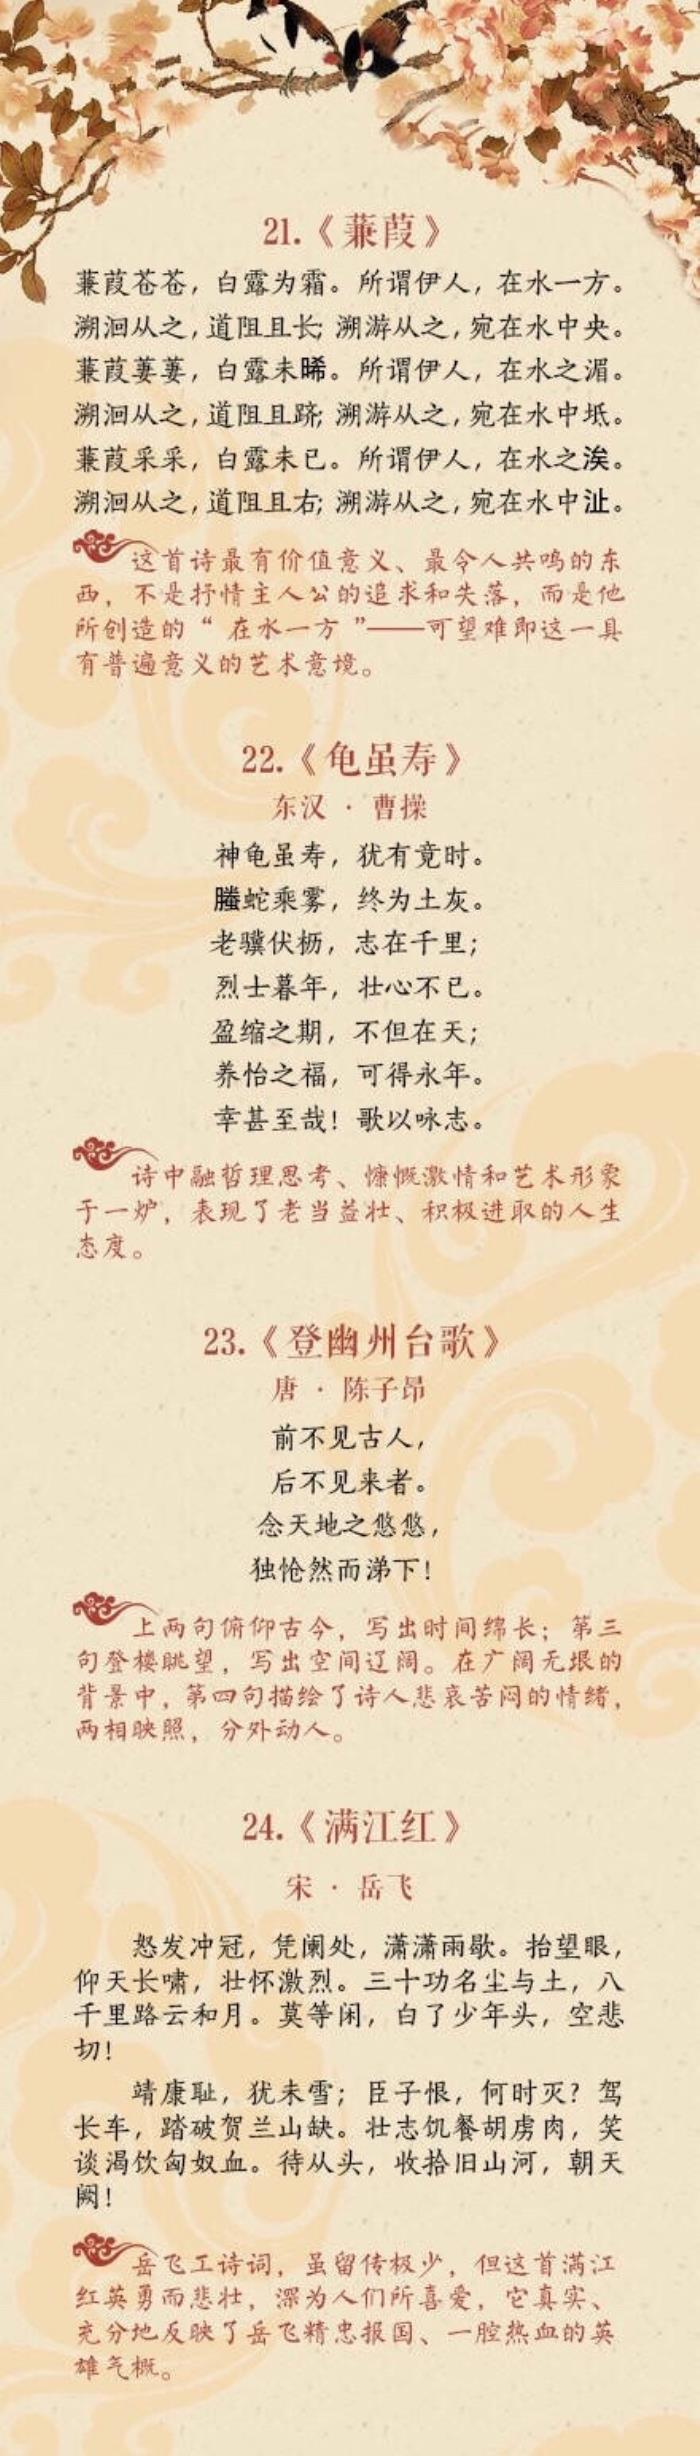 21.《蒹葭》
蒹葭苍苍，白露为霜。所谓伊人，在水一方。
溯洄从之，道阻且长；溯游从之，宛在水中央。
蒹葭萋萋，白露未晞。所谓伊人，在水之湄。
溯洄从之，道阻且跻；溯游从之，宛在水中坻。
蒹葭采采，白露未已。所谓伊人，在水之涘。
溯洄从之，道阻且右；溯游从之，宛在水中沚。
这首诗最有价值意义、最令人共鸣的东
西，不是抒情主人公的追求和失落，而是他
所创造的“在水一方”——可望难即这一具
有普遍意义的艺术意境。
22.《龟虽寿》
东汉·曹操
神龟虽寿，犹有竟时。
螣蛇乘雾，终为土灰。
老骥伏枥，志在千里；
烈士暮年，壮心不已。
盈缩之期，不但在天；
养怡之福，可得永年。
幸甚至哉！歌以咏志。
诗中融哲理思考、慷慨激情和艺术形象
于一炉，表现了老当益壮、积极进取的人生
态度。
23.《登幽州台歌》
唐·陈子昂
前不见古人，
后不见来者。
念天地之悠悠，
独怆然而涕下！
上两句俯仰古今，写出时间绵长；第三
句登楼眺望，写出空间辽阔。在广阔无垠的
背景中，第四句描绘了诗人悲哀苦闷的情绪，
两相映照，分外动人。
24.《满江红》
宋·岳飞
怒发冲冠，凭阑处，潇潇雨歇。抬望眼，
仰天长啸，壮怀激烈。三十功名尘与土，八
千里路云和月。莫等闲，白了少年头，空悲
切！
靖康耻，犹未雪；臣子恨，何时灭？驾
长车，踏破贺兰山缺。壮志饥餐胡虏肉，笑
谈渴饮匈奴血。待从头，收拾旧山河，朝天
阙！
岳飞工诗词，虽留传极少，但这首满江
红英勇而悲壮，深为人们所喜爱，它真实、
充分地反映了岳飞精忠报国、一腔热血的英
雄气概。